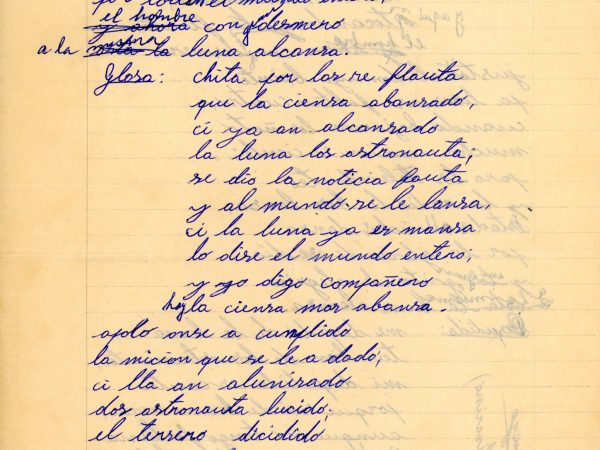 el hombre
y ahora con gran desmero
a la misma la luna alcansa.
Glosa: chita por los re flauta
que la ciensa abansado,
ci ya an alcansado
la luna los astronauta;
se dio la noticia pauta
y al mundo se le lansa,
ci la luna ya es mansa
lo dise el mundo entero;
y yo digo compañero
hoy la ciensa mas abansa.
apolo onse a cumplido
la micion que se le a dado,
ci lla an alunisado
dos astronauta lucido;
el terreno dicidido